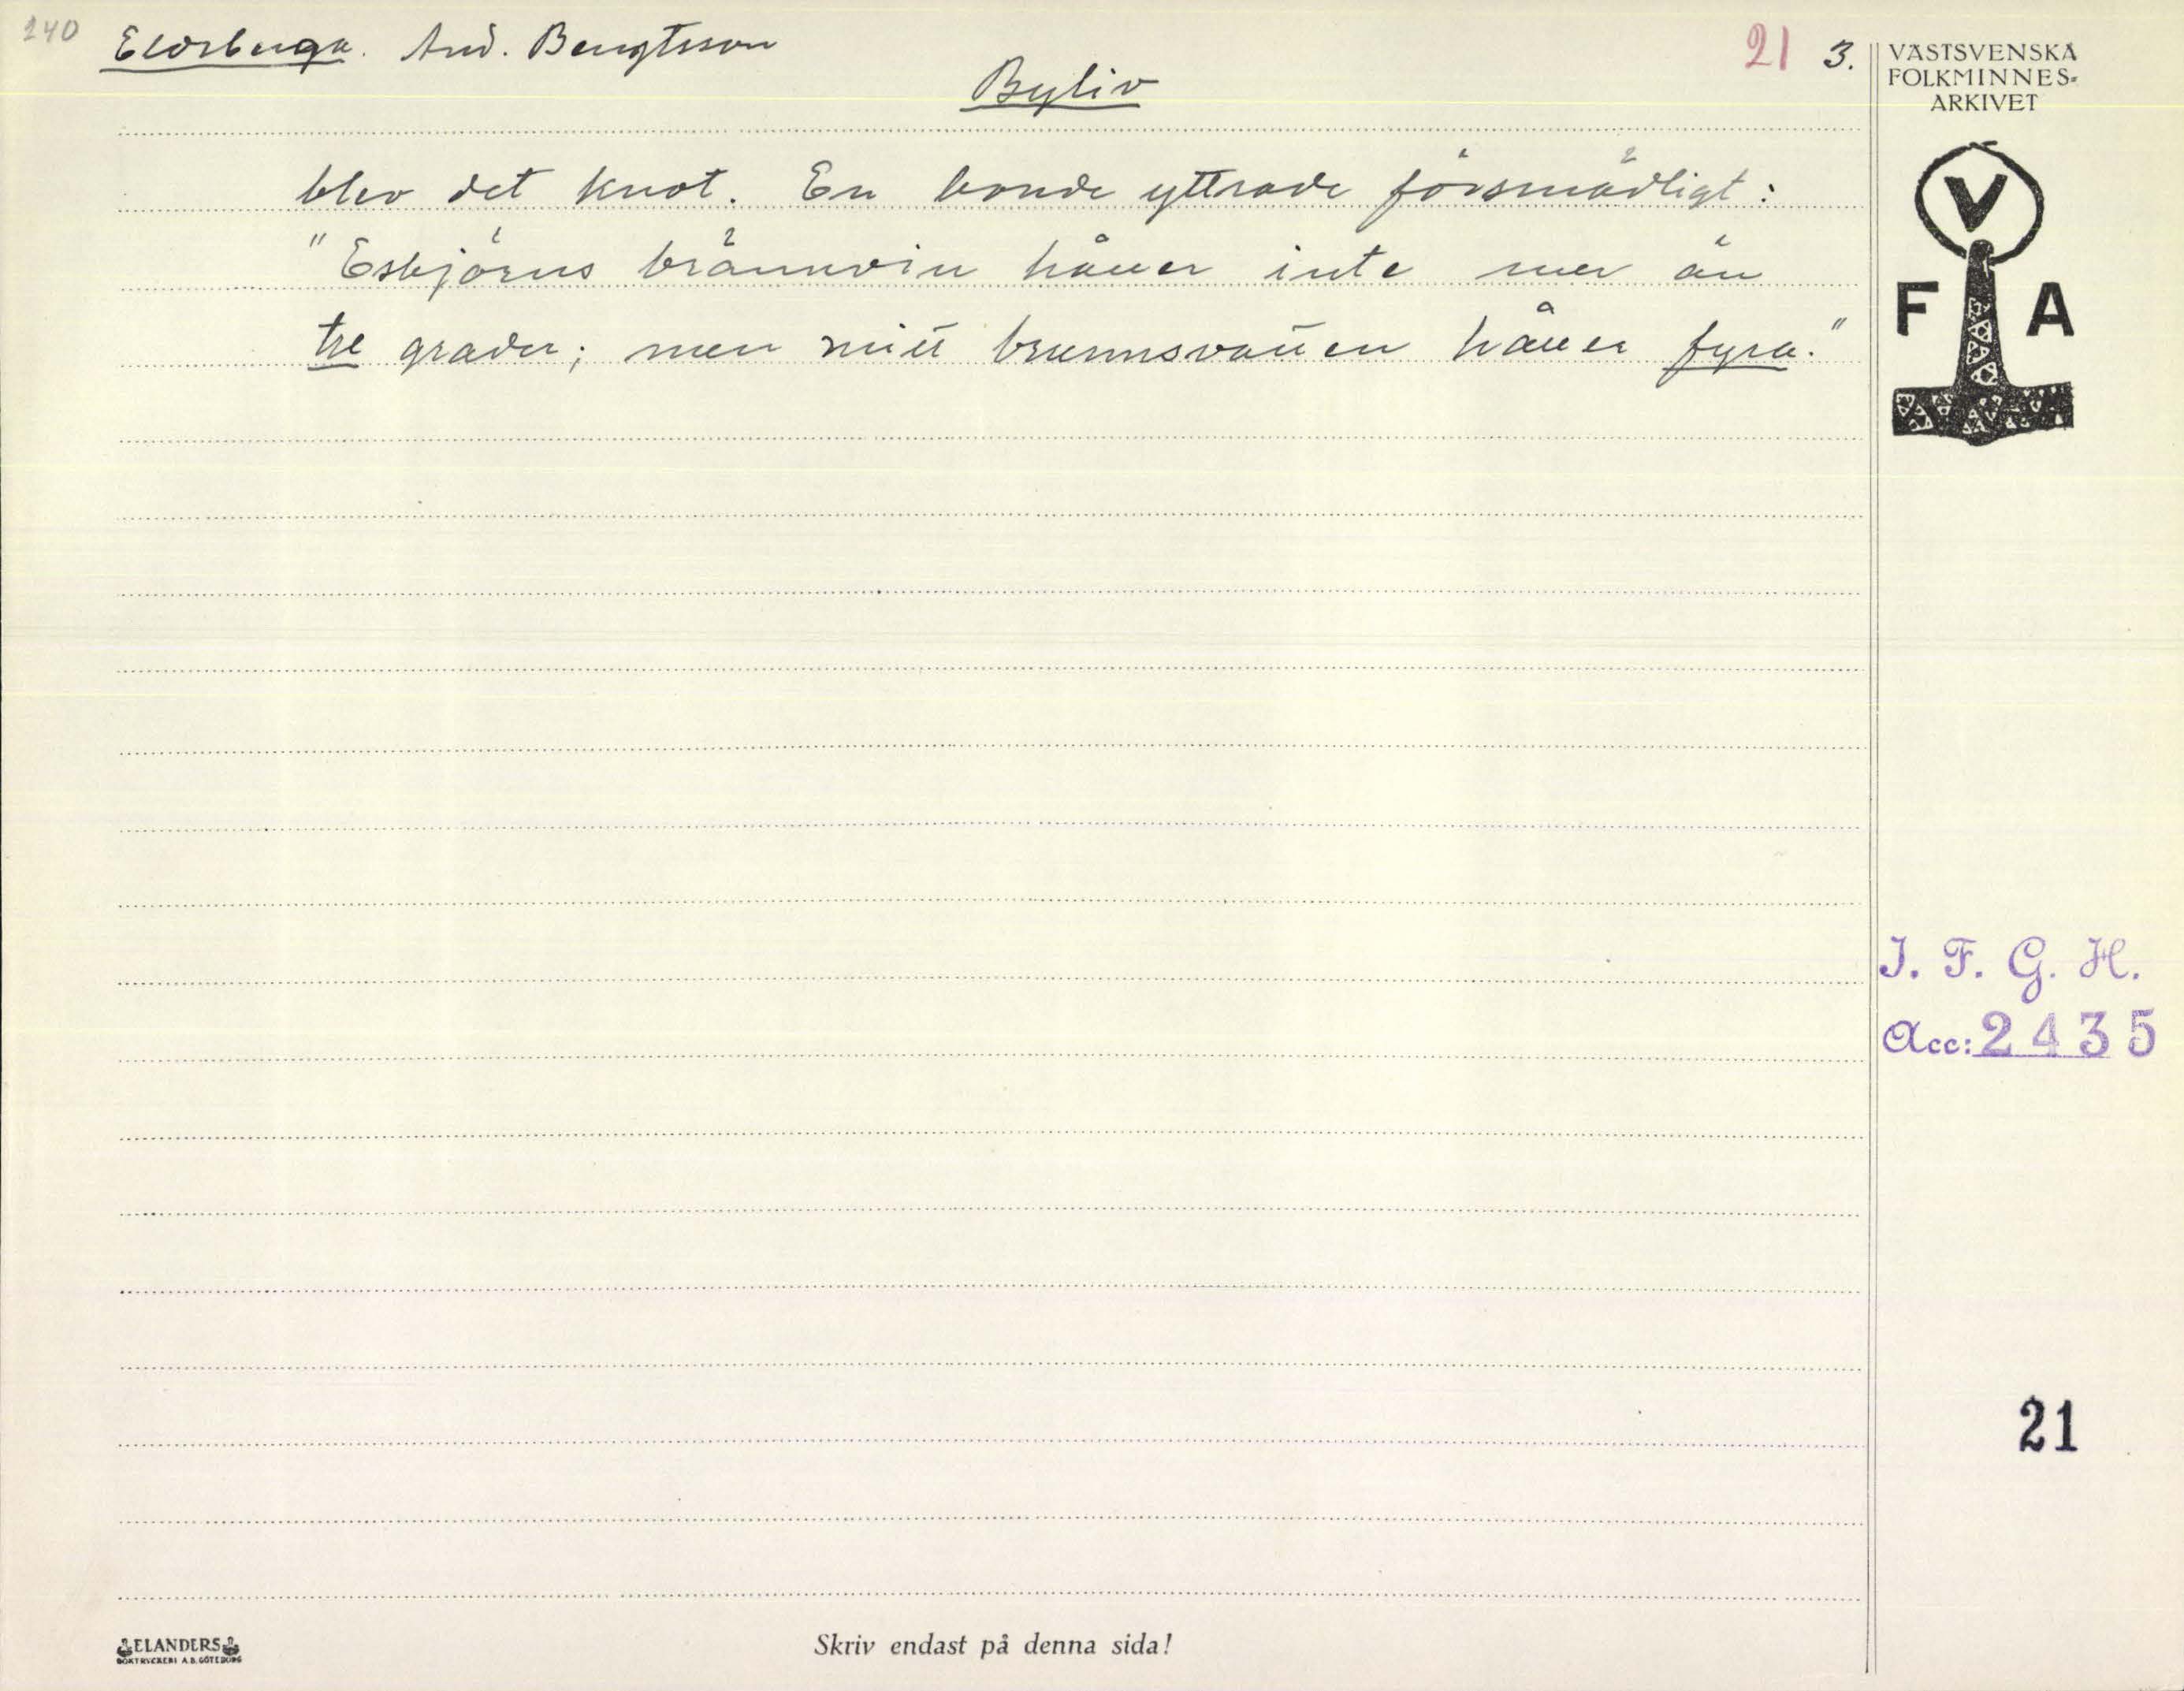 240 Eldsberga. And. Bengtsson 21 3.
Byliv
blev det knot. En bonde yttrade försmädligt:
"Esbjörns brännvin håller inte mer än
tre grader; men mitt brunnsvatten håller fyra."
VÄSTSVENSKA
FOLKMINNES-
ARKIVET
V
F A
I. F. G. H.
Acc: 2435
21
ELANDERS
BOKTRYCKERI A.B. GÖTEBORG
Skriv endast på denna sida!